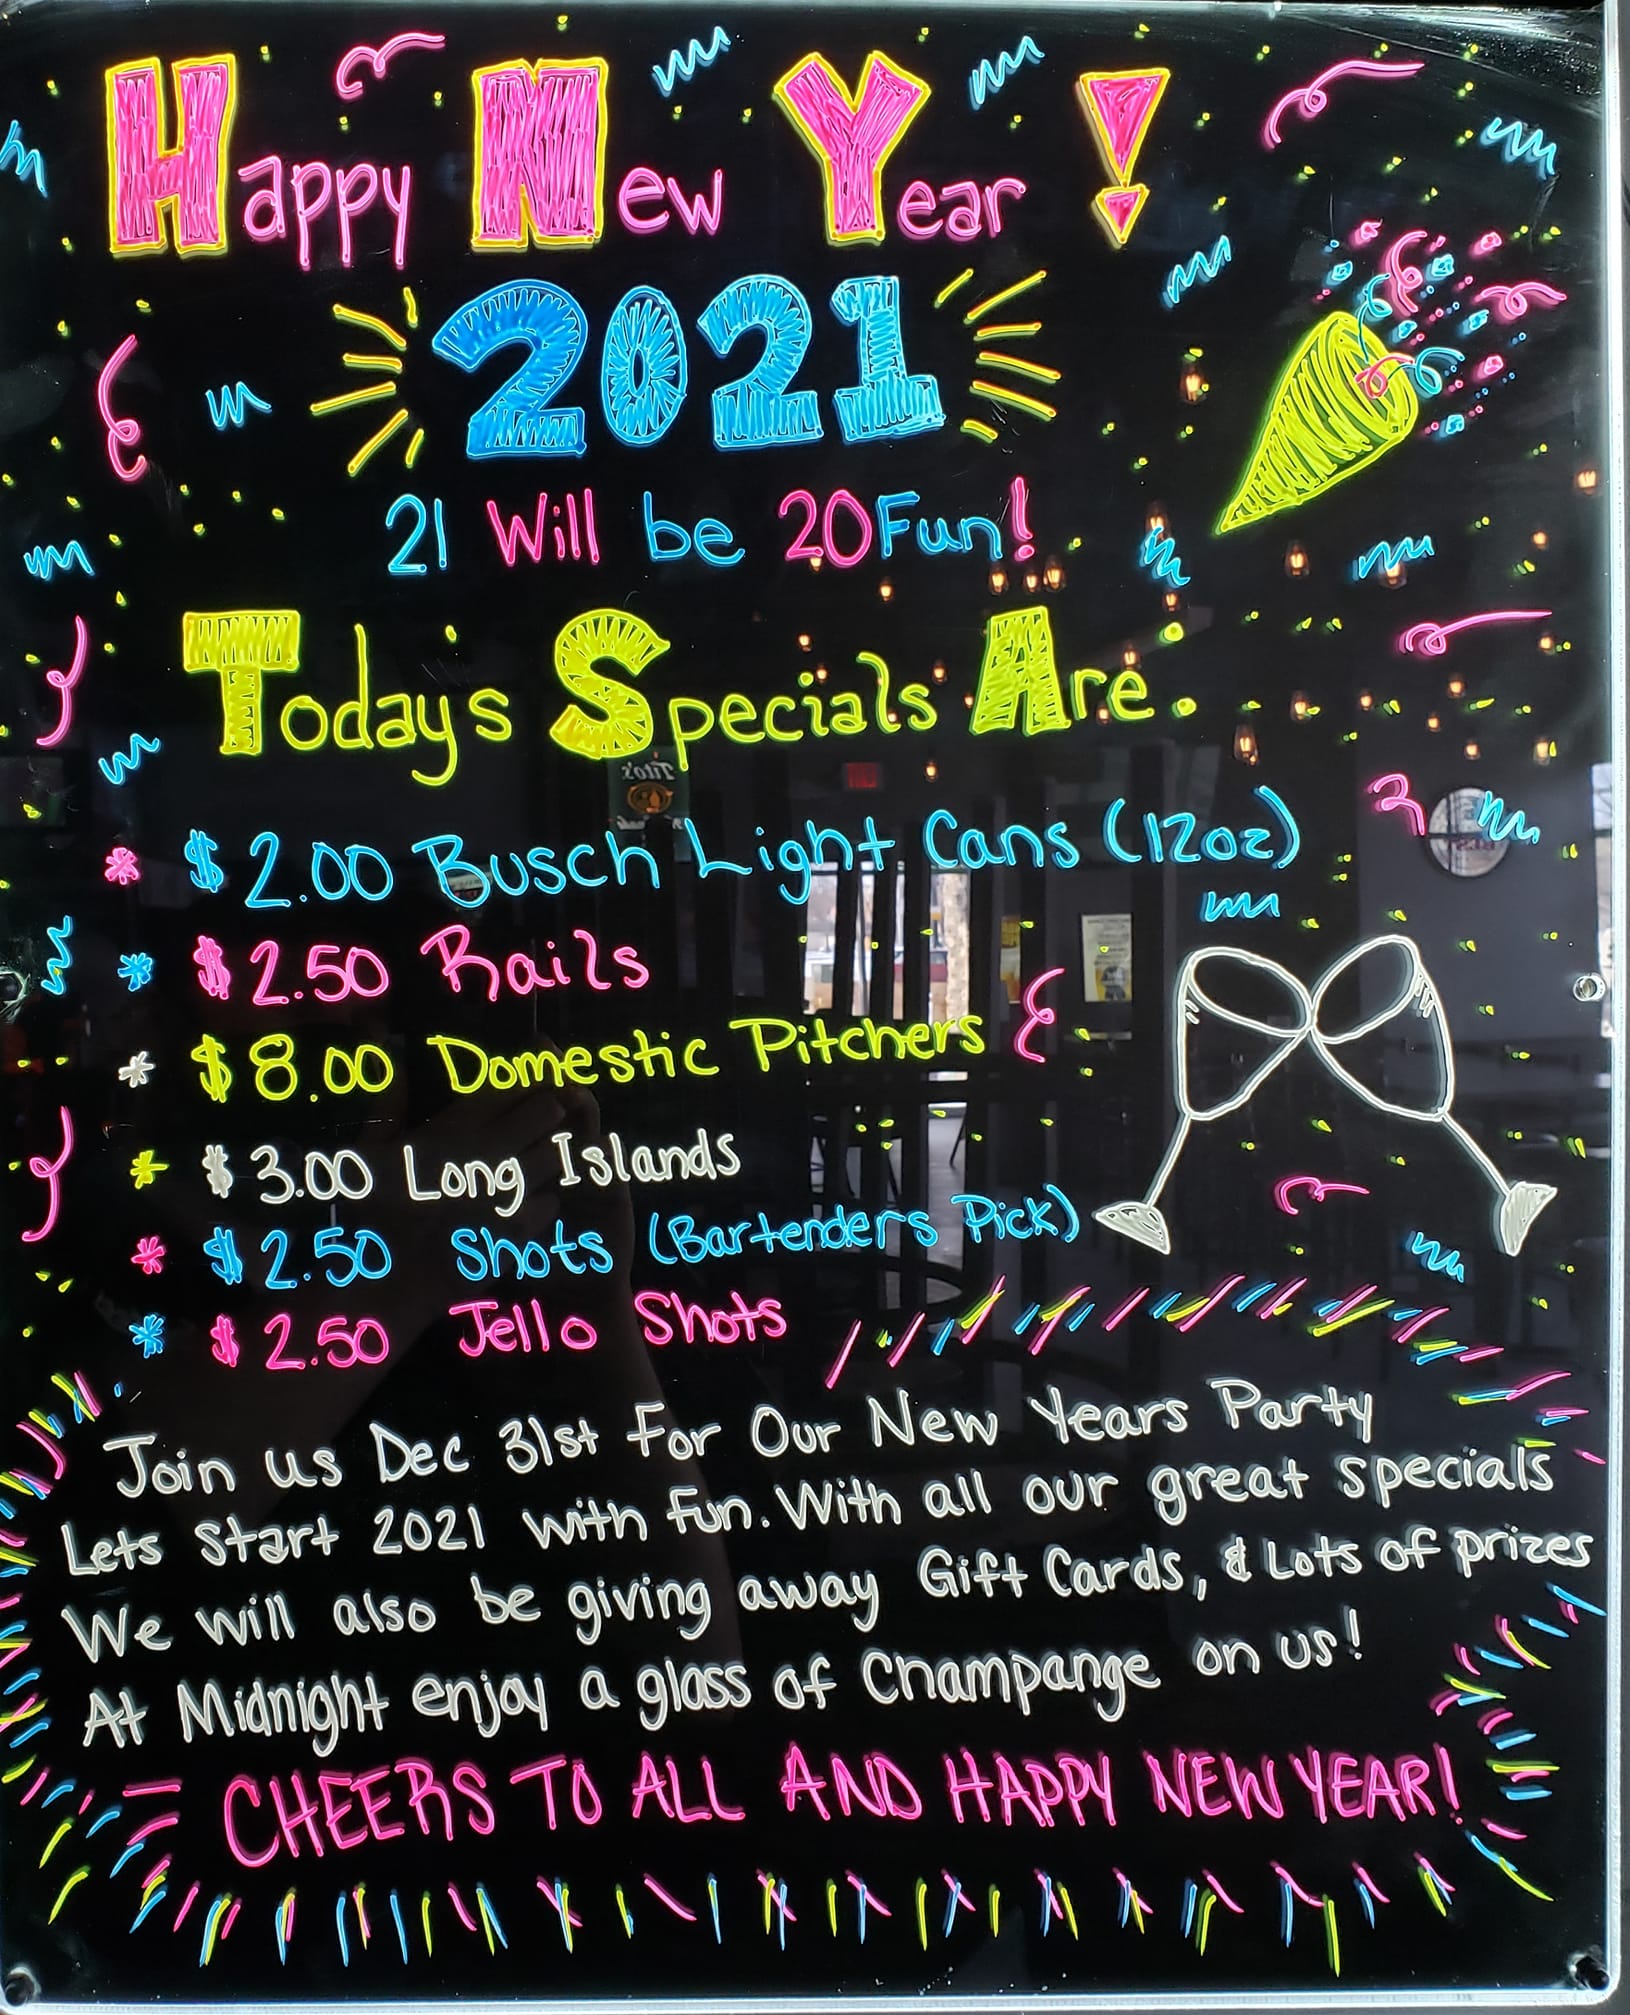 Happy New Year!
2021
21 Will be 20Fun!
Today's Specials Are.
* $2.00 Busch Light Cans (12oz)
* $2.50 Rails
* $8.00 Domestic Pitchers
* $3.00 Long Islands
* $2.50 Shots (Bartenders Pick)
* $2.50 Jello Shots
Join us Dec 31st For Our New Years Party
Lets Start 2021 with Fun. With all our great specials
We will also be giving away Gift Cards, & Lots of prizes
At Midnight enjoy a glass of Champange on us!
CHEERS TO ALL AND HAPPY NEW YEAR!
Tito's